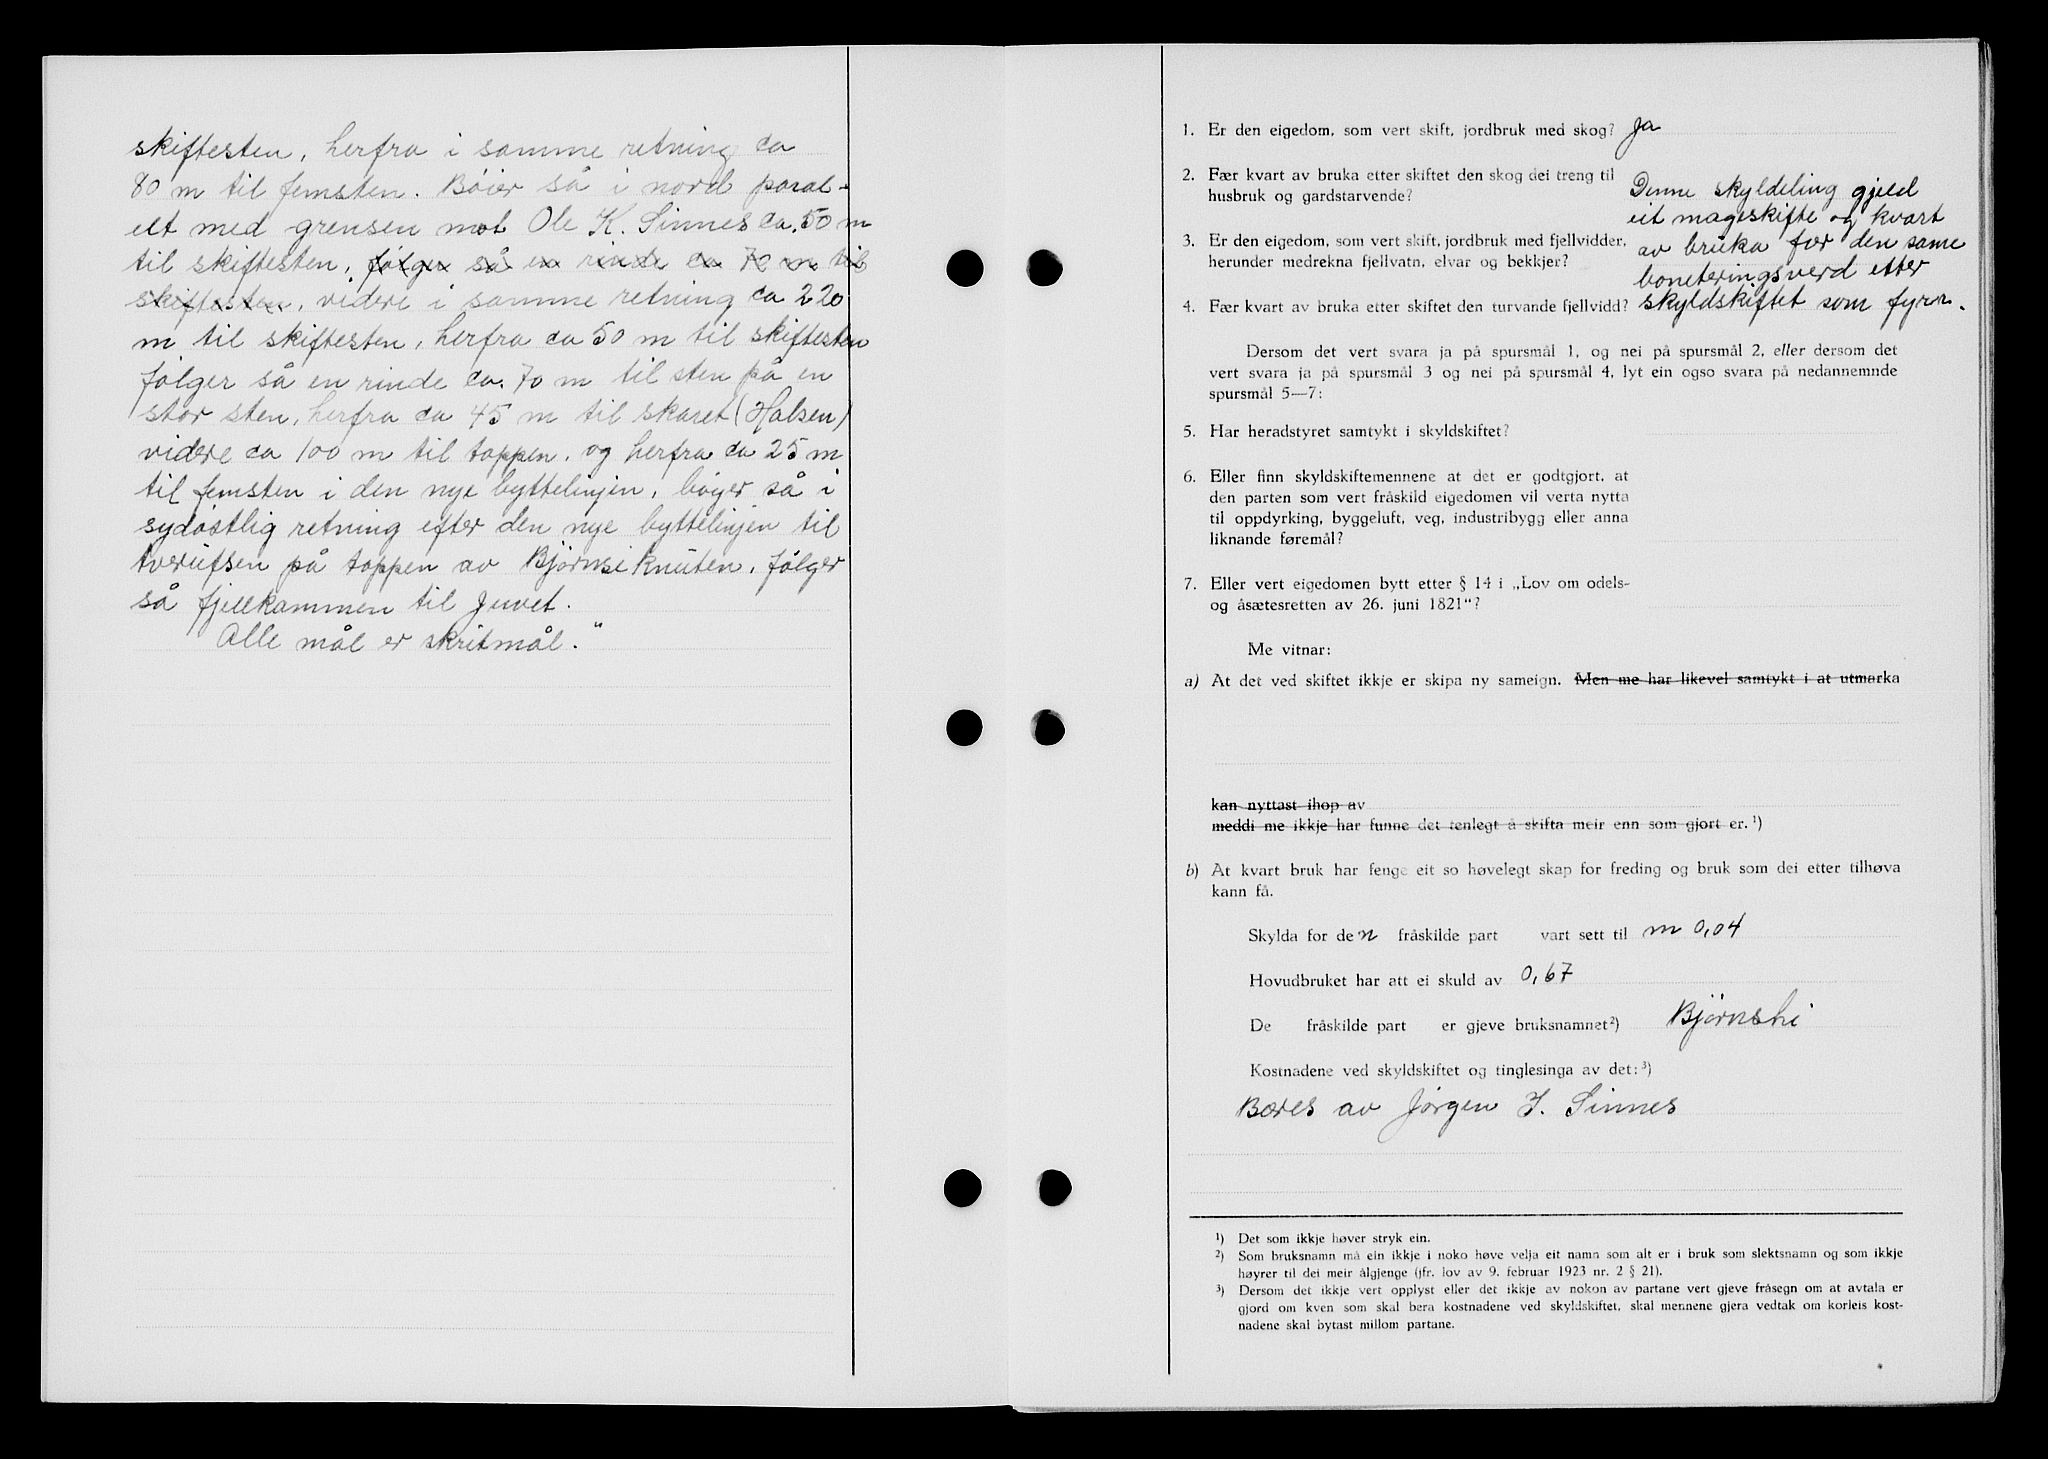 skiftesten, herfra i samme retning ca
80 m til femsten. Bøier så i nord paral-
elt med grensen mot Ole K. Sinnes ca. 50 m
til skiftesten, følger så en rinde ca 70 m til
skiftesten, videre i samme retning ca 220
m til skiftesten, herfra ca 50 m til skiftesten
følger så en rinde ca. 70 m til sten på en
stor sten, herfra ca 45 m til skaret (Halsen)
videre ca 100 m til toppen, og herfra ca 25 m
til femsten i den nye byttelinjen, bøyer så i
sydøstlig retning efter den nye byttelinjen til
tverufsen på toppen av Bjørnsiknuten, følger
så fjellkammen til Juvet.
Alle mål er skritmål."
1. Er den eigedom, som vert skift, jordbruk med skog? Ja
2. Fær kvart av bruka etter skiftet den skog dei treng til
husbruk og gardstarvende?
Denne skyldeling gjeld
eit mageskifte og kvart
av bruka før den same
boneteringsverd etter
skyldskiftet som fyrr.
3. Er den eigedom, som vert skift, jordbruk med fjellvidder,
herunder medrekna fjellvatn, elvar og bekkjer?
4. Fær kvart av bruka etter skiftet den turvande fjellvidd?
Dersom det vert svara ja på spursmål 1, og nei på spursmål 2, eller dersom det
vert svara ja på spursmål 3 og nei på spursmål 4, lyt ein ogso svara på nedannemnde
spursmål 5—7:
5. Har heradstyret samtykt i skyldskiftet?
6. Eller finn skyldskiftemennene at det er godtgjort, at
den parten som vert fråskild eigedomen vil verta nytta
til oppdyrking, byggeluft, veg, industribygg eller anna
liknande føremål?
7. Eller vert eigedomen bytt etter § 14 i „Lov om odels-
og åsætesretten av 26. juni 1821“?
Me vitnar:
a) At det ved skiftet ikkje er skipa ny sameign. Men me har likevel samtykt i at utmarka
kan nyttast ihop av
meddi me ikkje har funne det tenlegt å skifta meir enn som gjort er. ¹)
b) At kvart bruk har fenge eit so høvelegt skap for freding og bruk som dei etter tilhøva
kann få.
Skylda for den fråskilde part vart sett til m 0,04
Hovudbruket har att ei skuld av 0,67
De fråskilde part er gjeve bruksnamnet²) Bjørnshi
Kostnadene ved skyldskiftet og tinglesinga av det:³)
Bæres av Jørgen J. Sinnes
¹) Det som ikkje høver stryk ein.
²) Som bruksnamn må ein ikkje i noko høve velja eit namn som alt er i bruk som slektsnamn og som ikkje
høyrer til dei meir ålgjenge (jfr. lov av 9. februar 1923 nr. 2 § 21).
³) Dersom det ikkje vert opplyst eller det ikkje av nokon av partane vert gjeve fråsegn om at avtala er
gjord om kven som skal bera kostnadene ved skyldskiftet, skal mennene gjera vedtak om korleis kost-
nadene skal bytast millom partane.